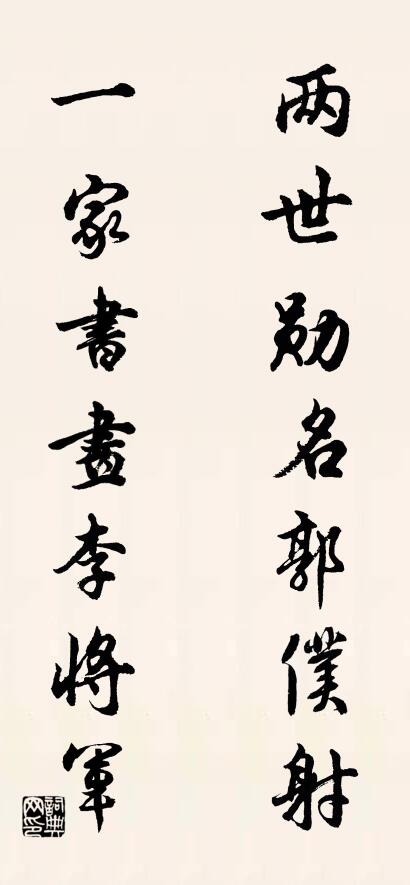 两世勋名郭僕射
一家書畫李將軍
詞典網印